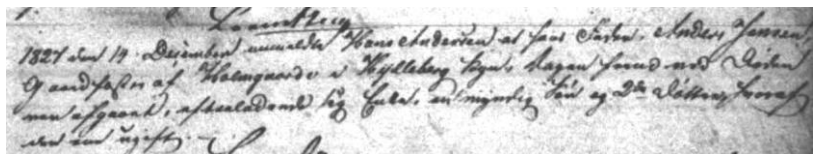 1827 den 14 December anmeldte Hans Andersen at hans Fader, Anders Jensen,
Gaardfæster af Holmgaard i Hylleberg Sogn, Dagen forud ved Døden
var afgaaet, efterladende sig Enke, en myndig Søn og 2de Døttre, hvoraf
den ene ugift.